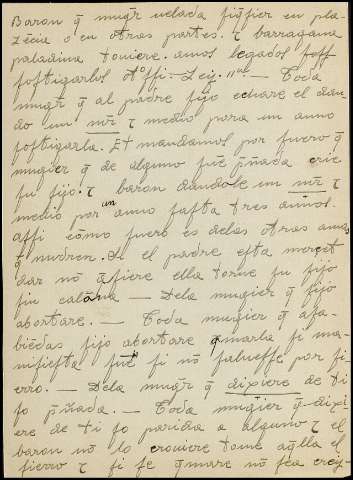 Baron q̃ mug̃r uelada fiq̃fier en pla-
zécia o en otras partes. τ barragana
paladina touiere. amos legados foff
foftigarlos otoffi. Leẏ. — Toda
mug̃r q̃ al padre fijo echare el dan-
do un mr̃ τ medio para un anno
foftigarla. Et mandamos por fuero q̃
mugier q̃ de alguno fuẽ p̃ñada crie
fu fijo. τ baron dandole un mr̃ τ
medio por un anno fafta tres annos.
affi cómo fuero es delas otras amas
q̃ nudren. Si el padre efta merçet
dar nõ q̃fiere ella torne fu fijo
fin calõnia — Dela mugier q̃ fijo
abortare. — Toda mugier q̃ afa-
biẽdas fijo abortare q̃marla fi ma-
nifiefta fuẽ fi nõ falueffe por fi
erro. — Dela mug̃r q̃ dixiere de ti
fo p̃ñada. — Toda mugier q̃ dixi-
ere de ti fo parida a alguno τ el
baron nõ lo crouiere tome aq̃lla el
fierro τ fi fe q̃mare nõ fea creẏ-